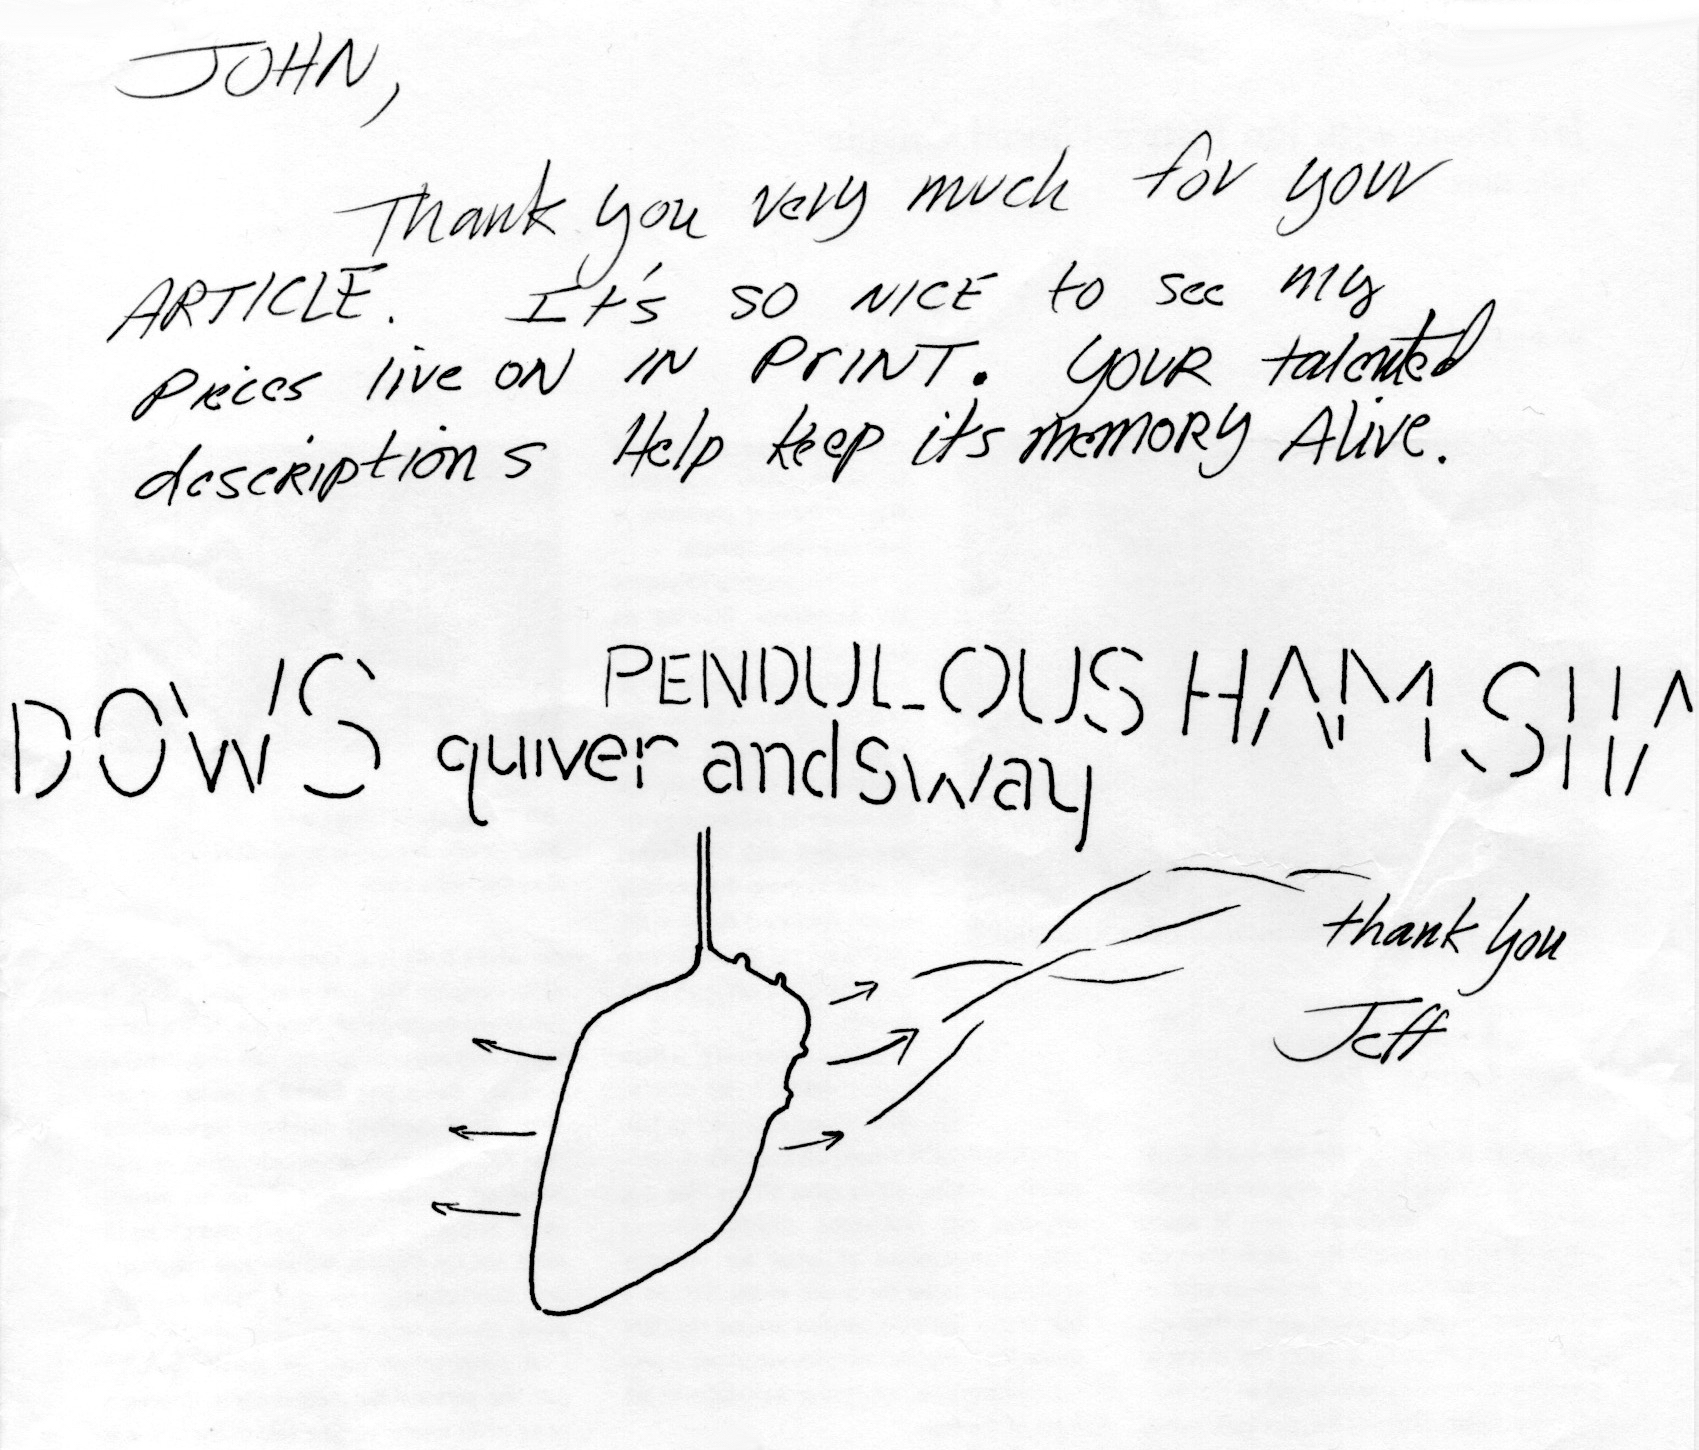 JOHN,
Thank you very much for your
ARTICLE. It's so NICE to see my
Pieces live ON IN PrINT. YOUR talented
descriptions Help keep it's memory Alive.
PENDULOUS HAM SHA
DOWS quiver and sway
thank you
Jeff